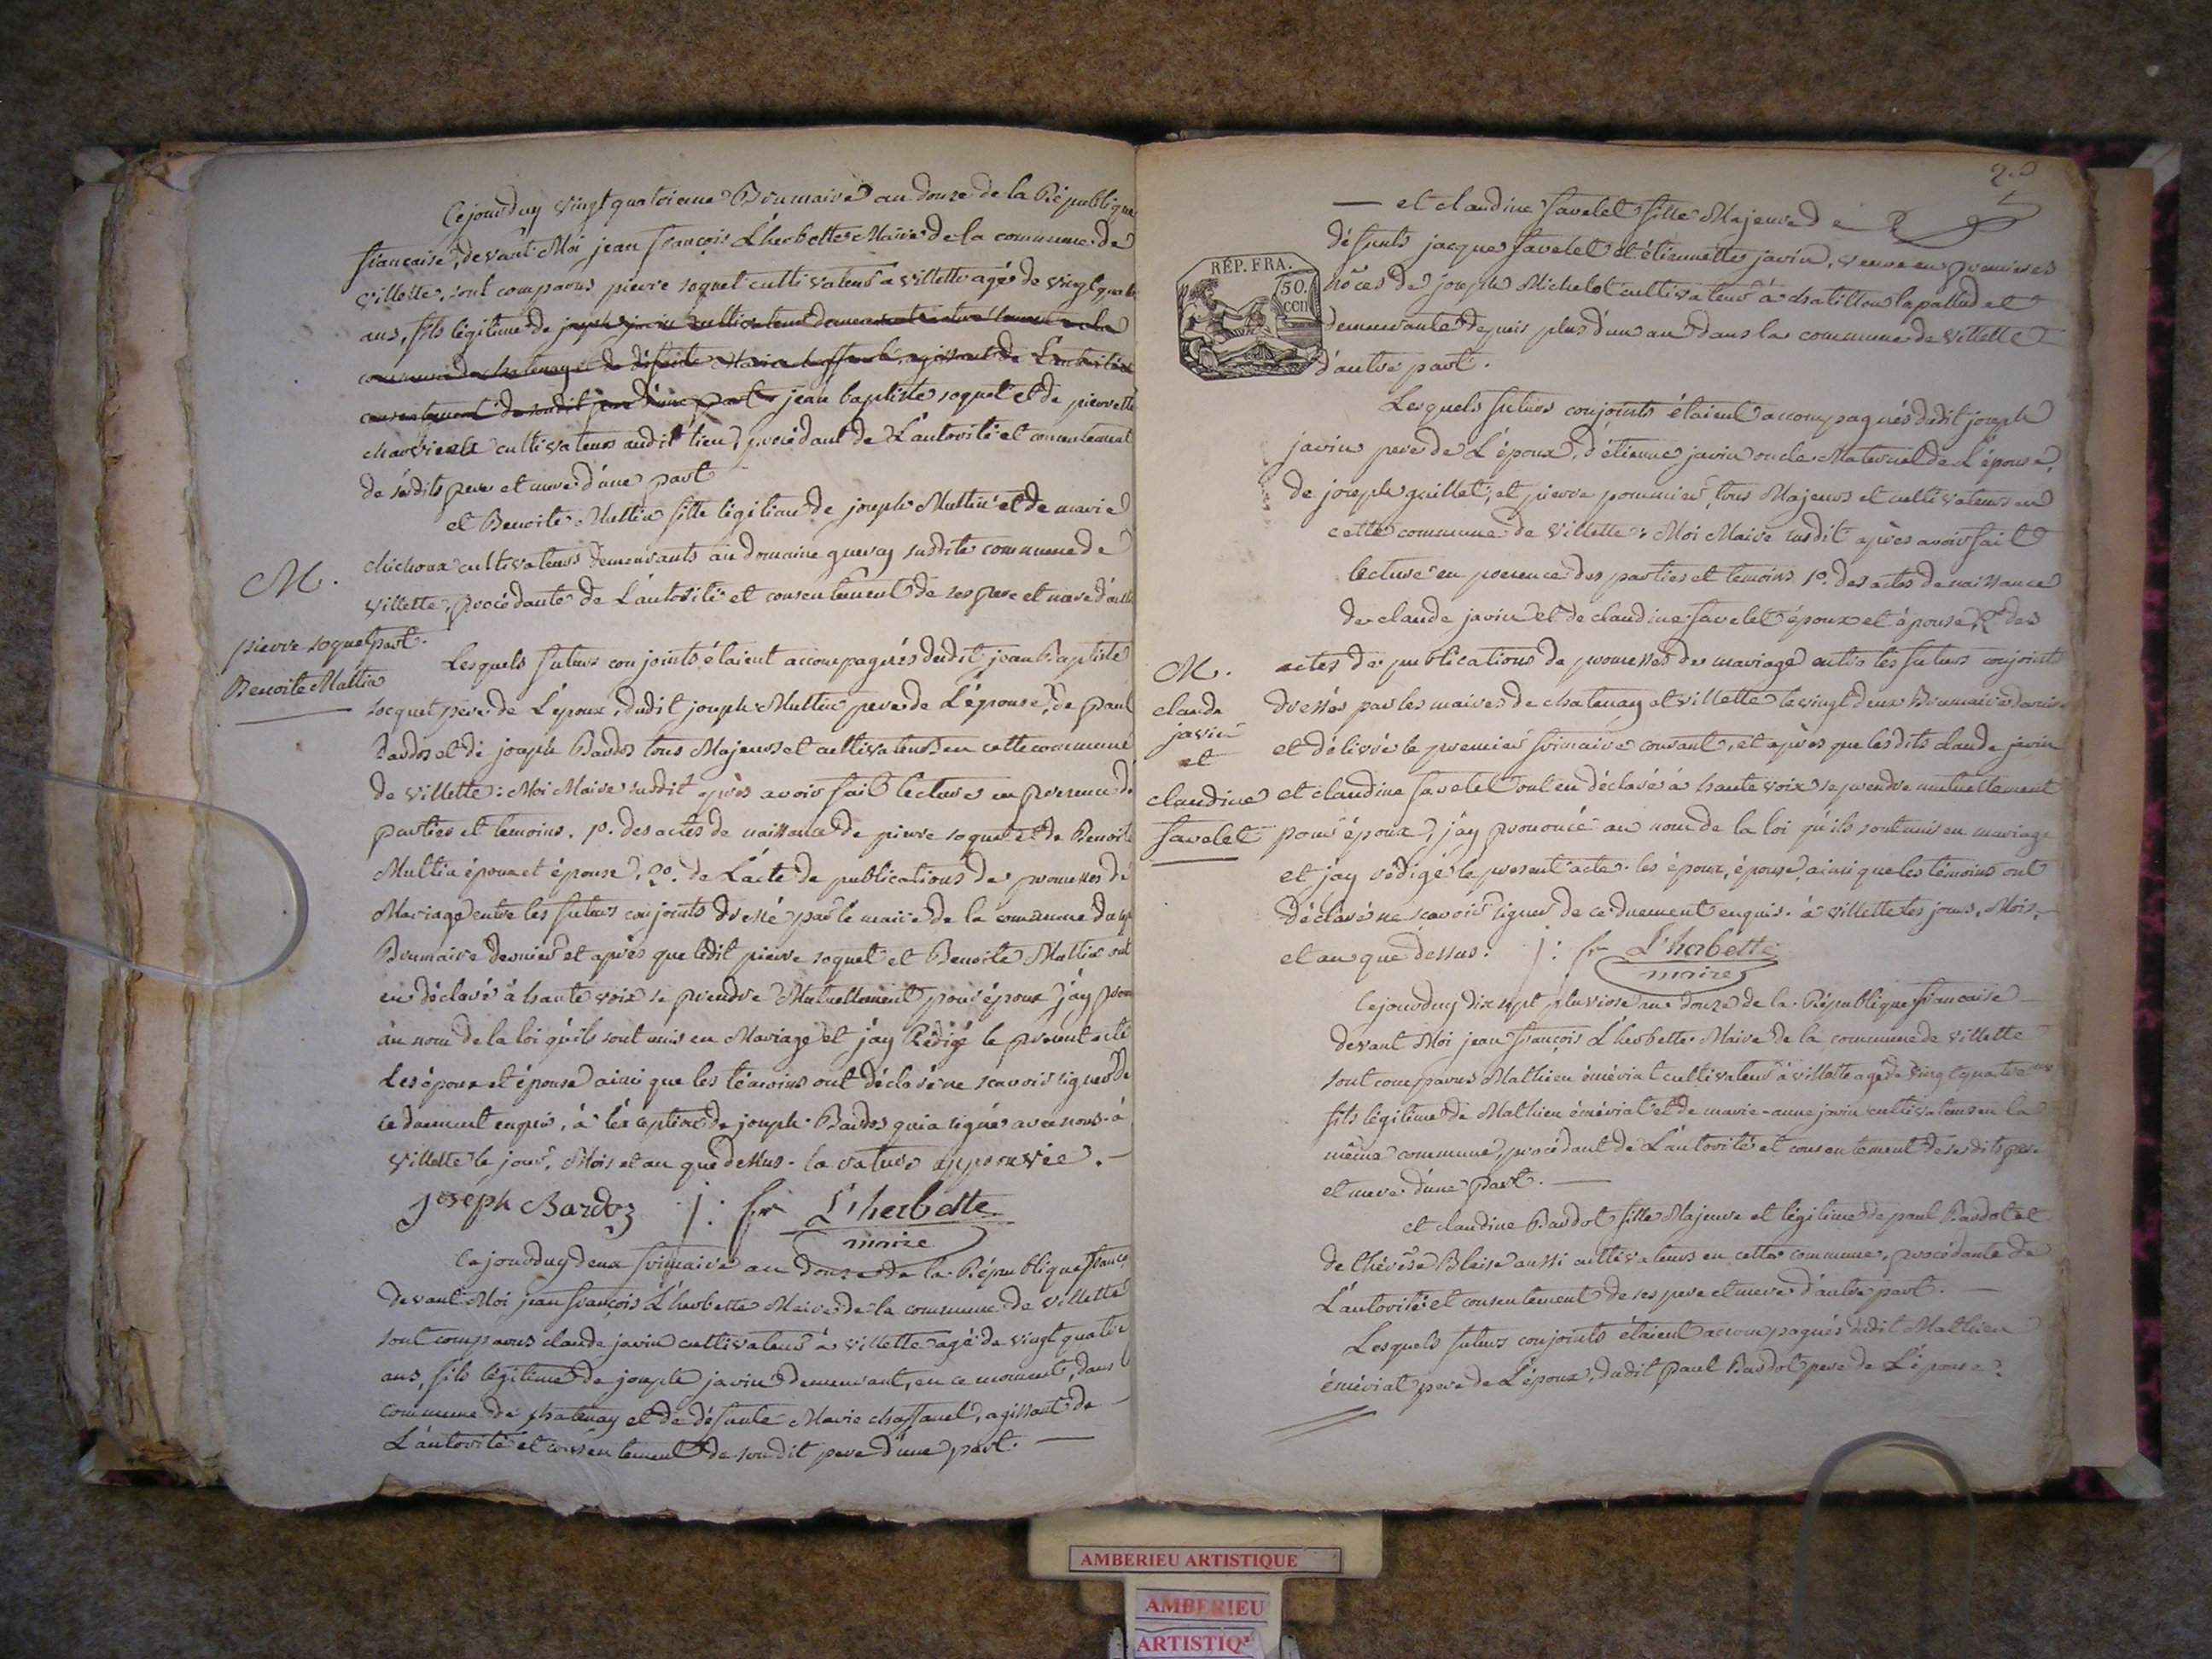 Cejourduy vingt quatrieme Brumaire an douze de la République
française, devant Moi jean françois L'herbette Maire de la commune de
villette, sont comparus pierre soquet cultivateur à villette agé de vingt quatre
ans, fils légitime de joseph javin cultivateur
commune de chatenay et de défunte Marie agissant de L'autorité et
consentement de sondit pere d'une part jean baptiste soquet et de pierrette
cultivateurs audit lieu, procédant de L'autorité et consentement
de sesdits pere et mere d'une part
et Benoite Multin fille légitime de joseph Multin et de marie
cultivateurs demeurants au domaine susdite commune de
villette, procédante de L'autorité et consentement de ses pere et mere d'autre
part.
M.
pierre soquet
Benoite Multin
Lesquels futurs conjoints étaient accompagnés dudit jean Baptiste
socquet pere de L'époux, dudit joseph Multin pere de L'épouse, de paul
Bardos et de joseph Bardos tous Majeurs et cultivateurs en cette commune
de villette : Moi Maire susdit après avoir fait lecture en presence de
parties et temoins. 1o. des actes de naissance de pierre soquet et de Benoite
Multin époux et épouse, 2o. de L'acte de publications de promesses de
Mariage entre les futurs conjoints dressé par le maire de la commune
Brumaire dernier et après que ledit pierre soquet et Benoite Multin ont
eu déclaré à haute voix se prendre Mutuellement pour époux j'ay
au nom de la loi qu'ils sont unis en Mariage et j'ay Rédigé le présent acte
Les époux et épouse ainsi que les témoins ont déclaré ne scavoir signer de
ce duement enquis, à L'éxception de joseph Bardos qui a signé avec nous. à
villette le jour, Mois et an que dessus. la rature approuvée.
Joseph Bardoz j : fr L'herbette
maire
Cejourduy deux frimaire an douze de la République franc.
devant Moi jean françois L'herbette Maire de la commune de villette
sont comparus claude javin cultivateur à villette agé de vingt quatre
ans, fils légitime de joseph javin demeurant, en ce moment, dans
commune de chatenay et de défunte Marie chaffanel, agissant de
L'autorité et consentement de sondit pere d'une part.
— et claudine favelet fille Majeure de
RÉP. FRA.
50.
cen
défunts jacques favelet et étiennette javin, veuve en premieres
nôces de joseph Michelot cultivateur à chatillon lapallud et
demeurante depuis plus d'un an dans la commune de villette
d'autre part.
Lesquels futurs conjoints étaient accompagnés dudit joseph
javin pere de L'époux, d'étienne javin oncle Maternel de L'épouse,
de joseph guillet, et pierre pommier, tous Majeurs et cultivateurs en
cette commune de villette : Moi Maire susdit après avoir fait
lecture en presence des parties et temoins 1o. des actes de naissance
de claude javin et de claudine favelet époux et épouse, 2o des
actes de publications de promesses de mariage entre les futurs conjoints
dressés par les maires de chatenay et villette le vingt deux Brumaire dernier
et délivré le premier frimaire courant, et après que lesdits claude javin
et claudine favelet ont eu déclaré à haute voix se prendre mutuellement
pour époux, j'ay prononcé au nom de la loi qu'ils sont unis en mariage
et j'ay rédigé le present acte. les époux, épouse, ainsi que les témoins ont
déclaré ne scavoir signer de ce duement enquis. à villette les jours, Mois,
et an que dessus. j : fr L'herbette
maire
M.
claude
javin
et
claudine
favelet
Cejourduy dix sept pluviose an douze de la République française
devant Moi jean françois L'herbette Maire de la commune de villette
sont comparus Mathieu éméviat cultivateur à villette agé de vingt quatre ans
fils légitime de Mathieu éméviat et de marie-anne javin cultivateurs en la
même commune, procédant de L'autorité et consentement de sesdits pere
et mere d'une part.
et claudine Bardot fille Majeure et légitime de paul Bardot et
de thérèse Blaise aussi cultivateurs en cette commune, procédante de
L'autorité et consentement de ses pere et mere d'autre part.
Lesquels futurs conjoints étaient accompagnés dudit Mathieu
éméviat pere de L'époux, dudit paul Bardot pere de L'épouse,
AMBERIEU ARTISTIQUE
AMBERIEU
ARTISTIQ